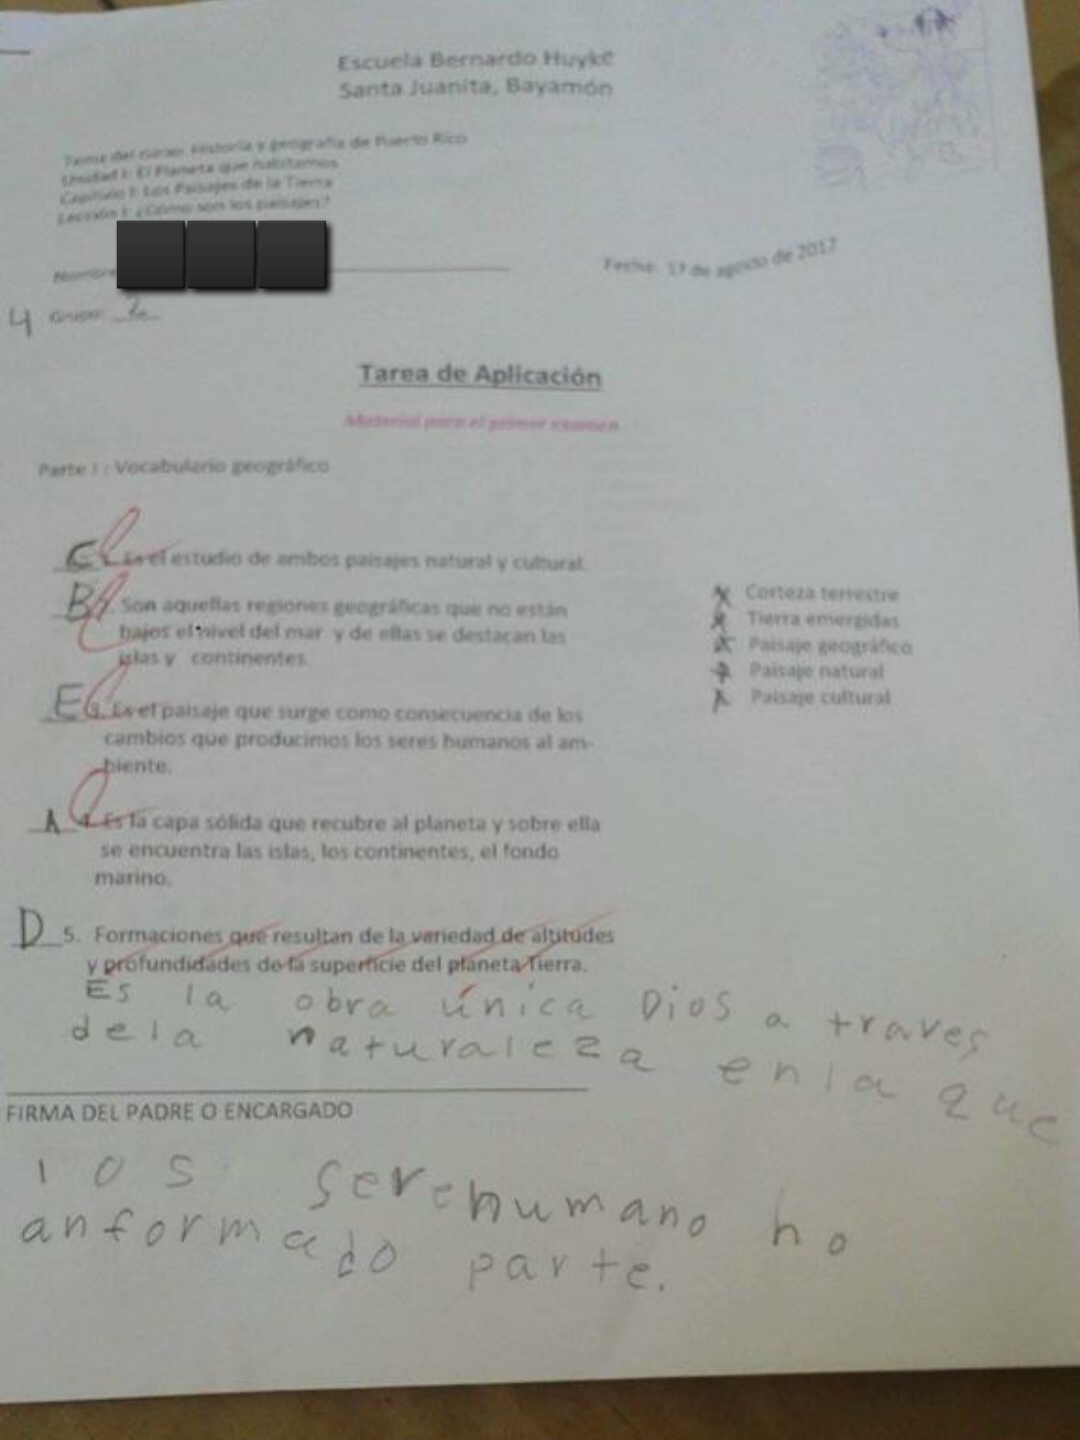 Escuela Bernardo Huyke
Santa Juanita, Bayamón
Tema del curso: Historia y geografía de Puerto Rico
Unidad I: El Planeta que habitamos
Capítulo I: Los Paisajes de la Tierra
Lección I: ¿Cómo son los paisajes?
Nombre
Fecha: 17 de agosto de 2017
4 Grupo: 2
Tarea de Aplicación
Material para el primer examen
Parte I : Vocabulario geográfico
C 1. Es el estudio de ambos paisajes natural y cultural.
B 2. Son aquellas regiones geográficas que no están
bajos el nivel del mar y de ellas se destacan las
islas y continentes.
E 3. Es el paisaje que surge como consecuencia de los
cambios que producimos los seres humanos al am-
biente.
A 4. Es la capa sólida que recubre al planeta y sobre ella
se encuentra las islas, los continentes, el fondo
marino.
D 5. Formaciones que resultan de la variedad de altitudes
y profundidades de la superficie del planeta Tierra.
Corteza terrestre
Tierra emergidas
Paisaje geográfico
Paisaje natural
Paisaje cultural
Es la obra única Dios a traves
dela naturaleza enla que
FIRMA DEL PADRE O ENCARGADO
los serehumano no
anformado parte.